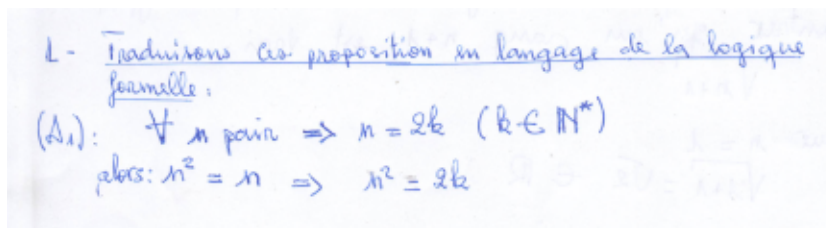 1 - Traduisons ces proposition en langage de la logique
formelle :
(A₁) : ∀ n pair ⇒ n = 2k (k ∈ ℕ*)
alors : n² = n ⇒ n² = 2k